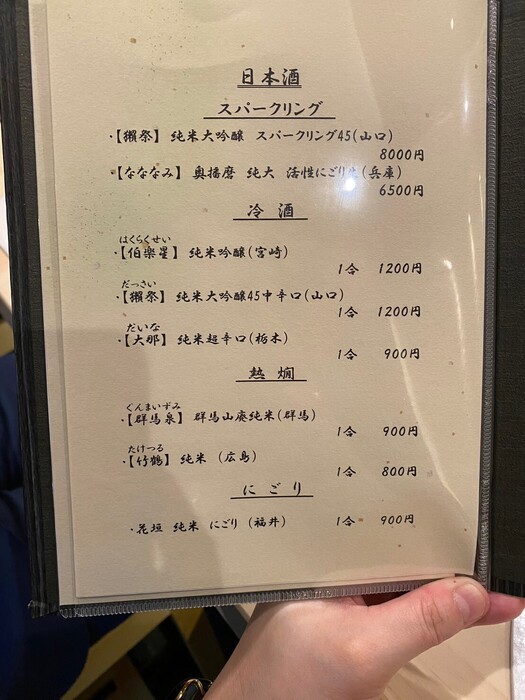 日本酒
スパークリング
・【獺祭】 純米大吟醸 スパークリング45(山口)
8000円
・【なななみ】 奥播磨 純大 活性にごり (兵庫)
6500円
冷酒
はくらくせい
・【伯楽星】 純米吟醸(宮崎)
1合 1200円
だっさい
・【獺祭】 純米大吟醸45中辛口(山口)
1合 1200円
だいな
・【大那】 純米超辛口(栃木)
1合 900円
熱燗
ぐんまいずみ
・【群馬泉】 群馬山廃純米(群馬)
1合 900円
たけつる
・【竹鶴】 純米 (広島)
1合 800円
にごり
・花垣 純米 にごり (福井)
1合 900円